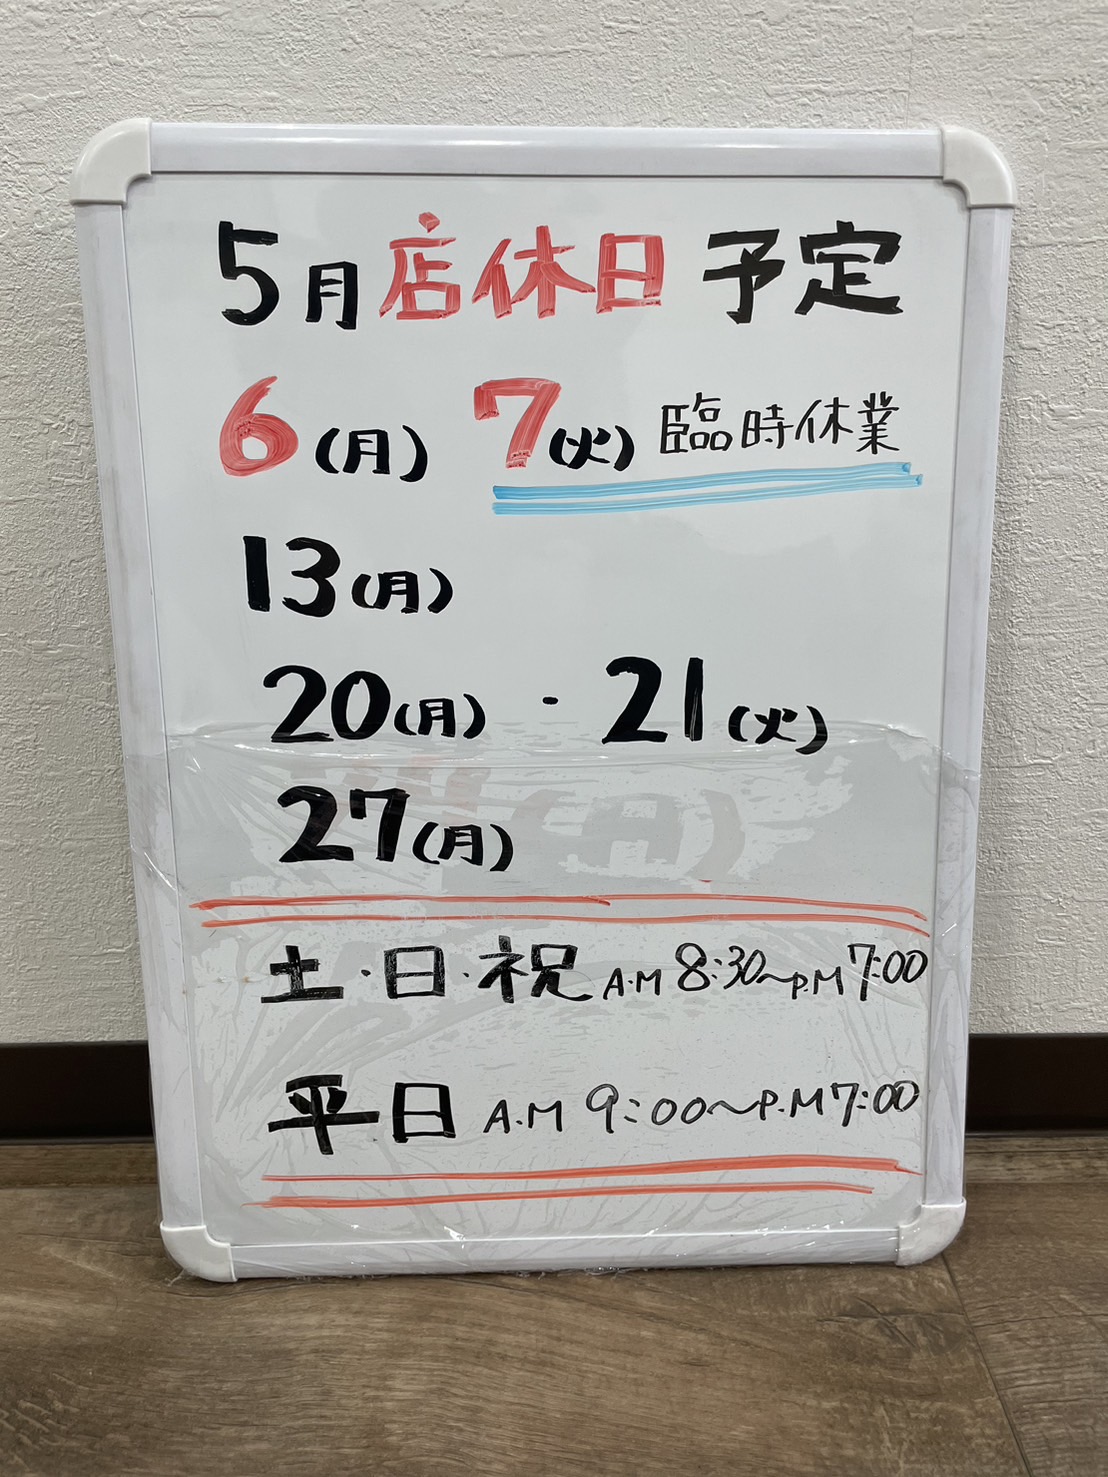 5月 店休日 予定
6(月) 7(火) 臨時休業
13(月)
20(月)・21(火)
27(月)
土・日・祝 A.M 8:30~P.M 7:00
平日 A.M 9:00~P.M 7:00